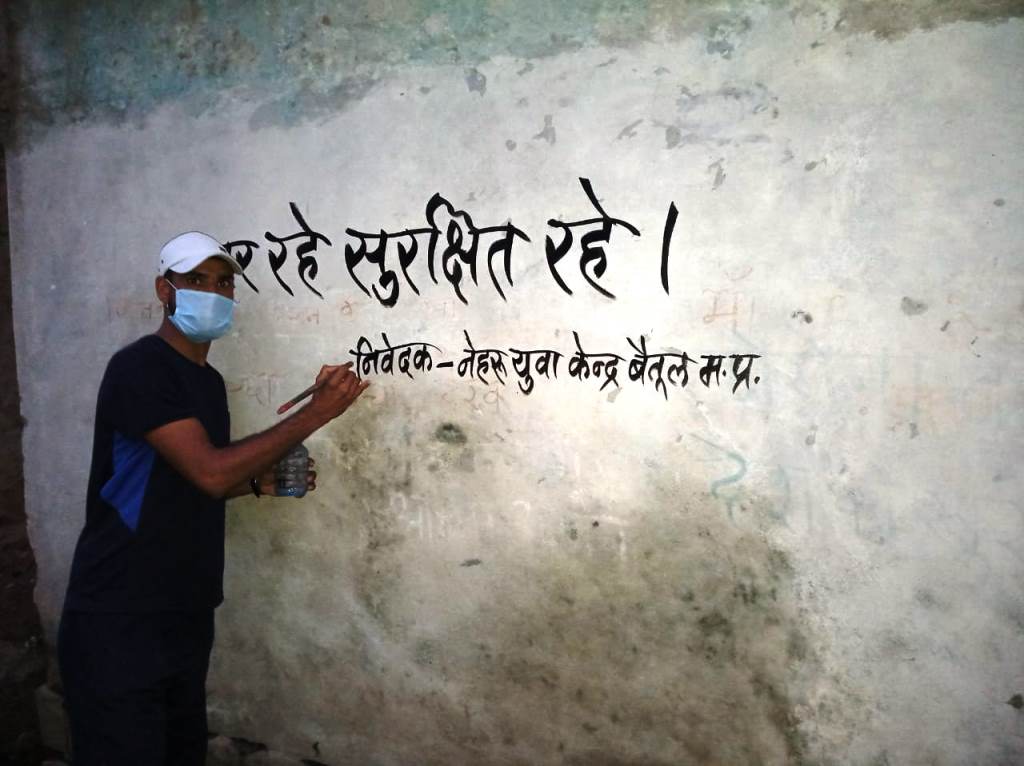 रहे सुरक्षित रहे ।
निवेदक - नेहरू युवा केन्द्र बैतूल म.प्र.